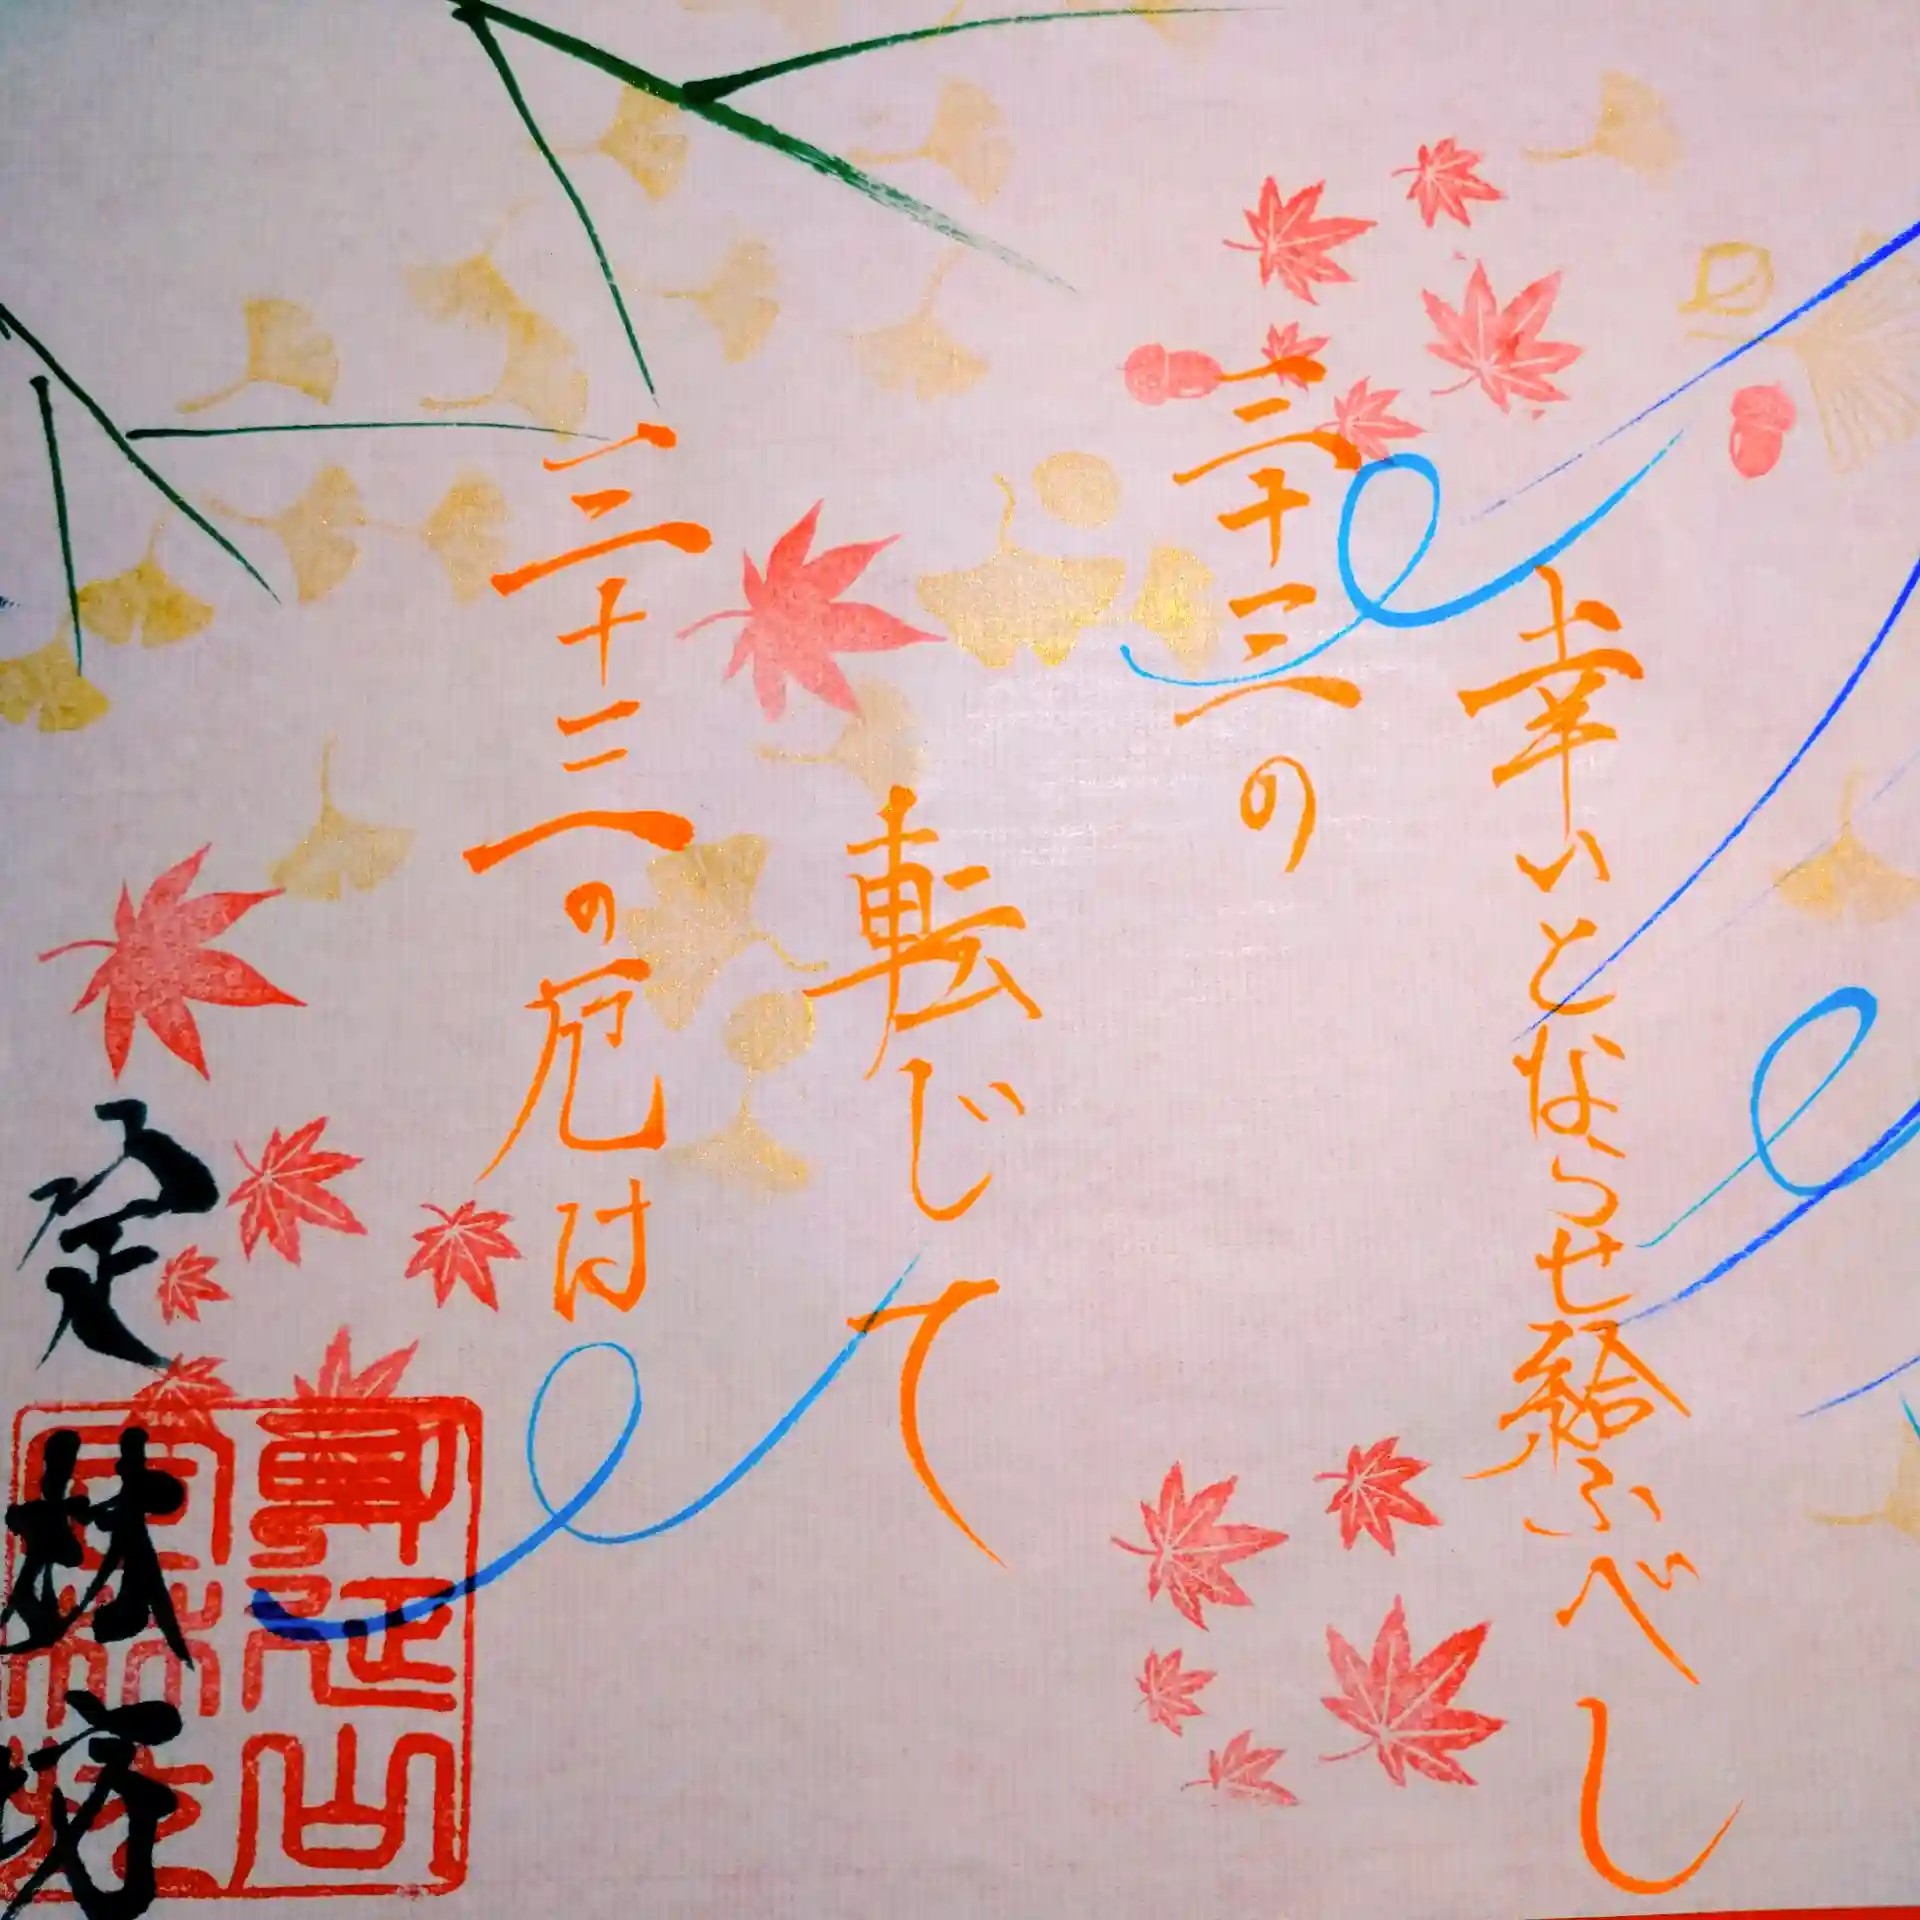 三十三の厄は
転じて
三十三の
幸いとならせ給ふべし
定林坊
身延山